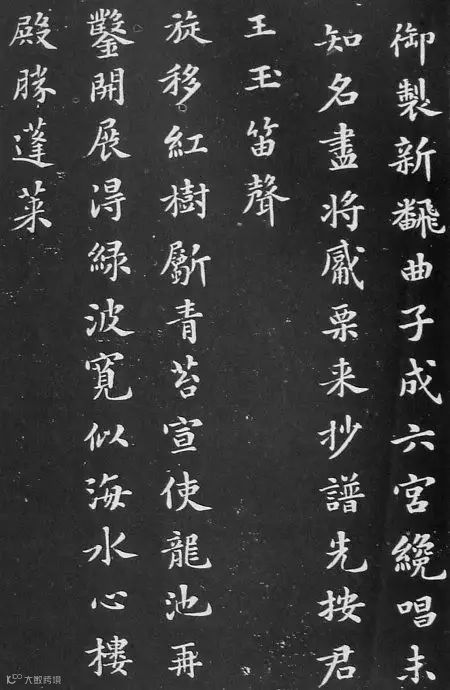 御製新飜曲子成六宮纔唱未
知名盡將觱栗来抄譜先按君
王玉笛聲
旋移紅樹斸青苔宣使龍池再
鑿開展淂緑波寬似海水心樓
殿勝蓬莱
大数跨境